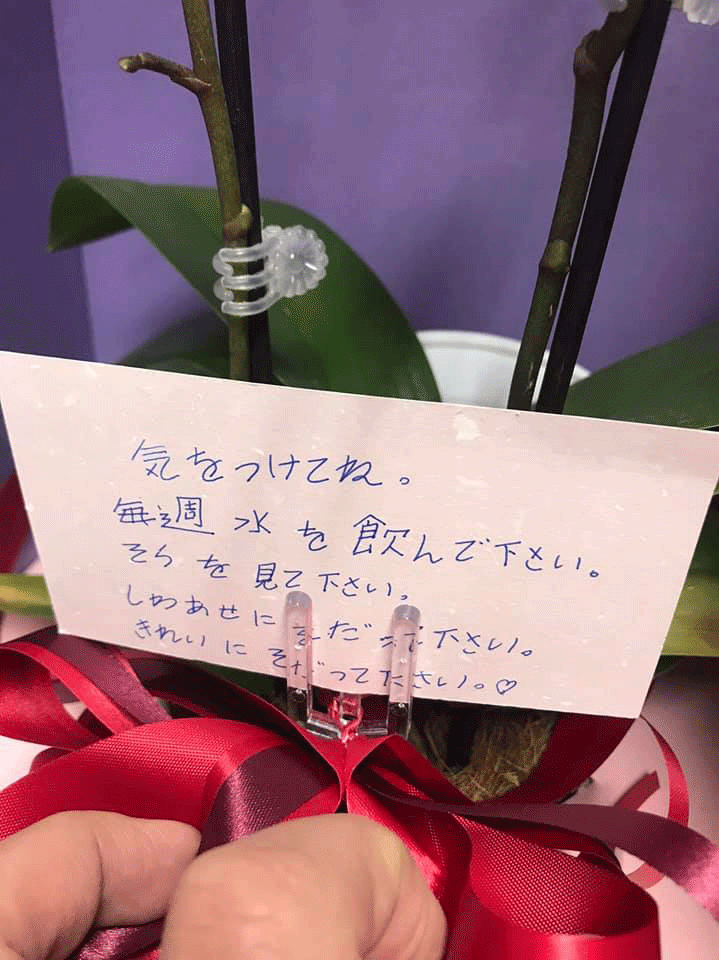 気をつけてね。
毎週 水 を 飲んで下さい。
そら を 見て 下さい。
しわあせに そだって下さい。
きれいに そだってださい。♡